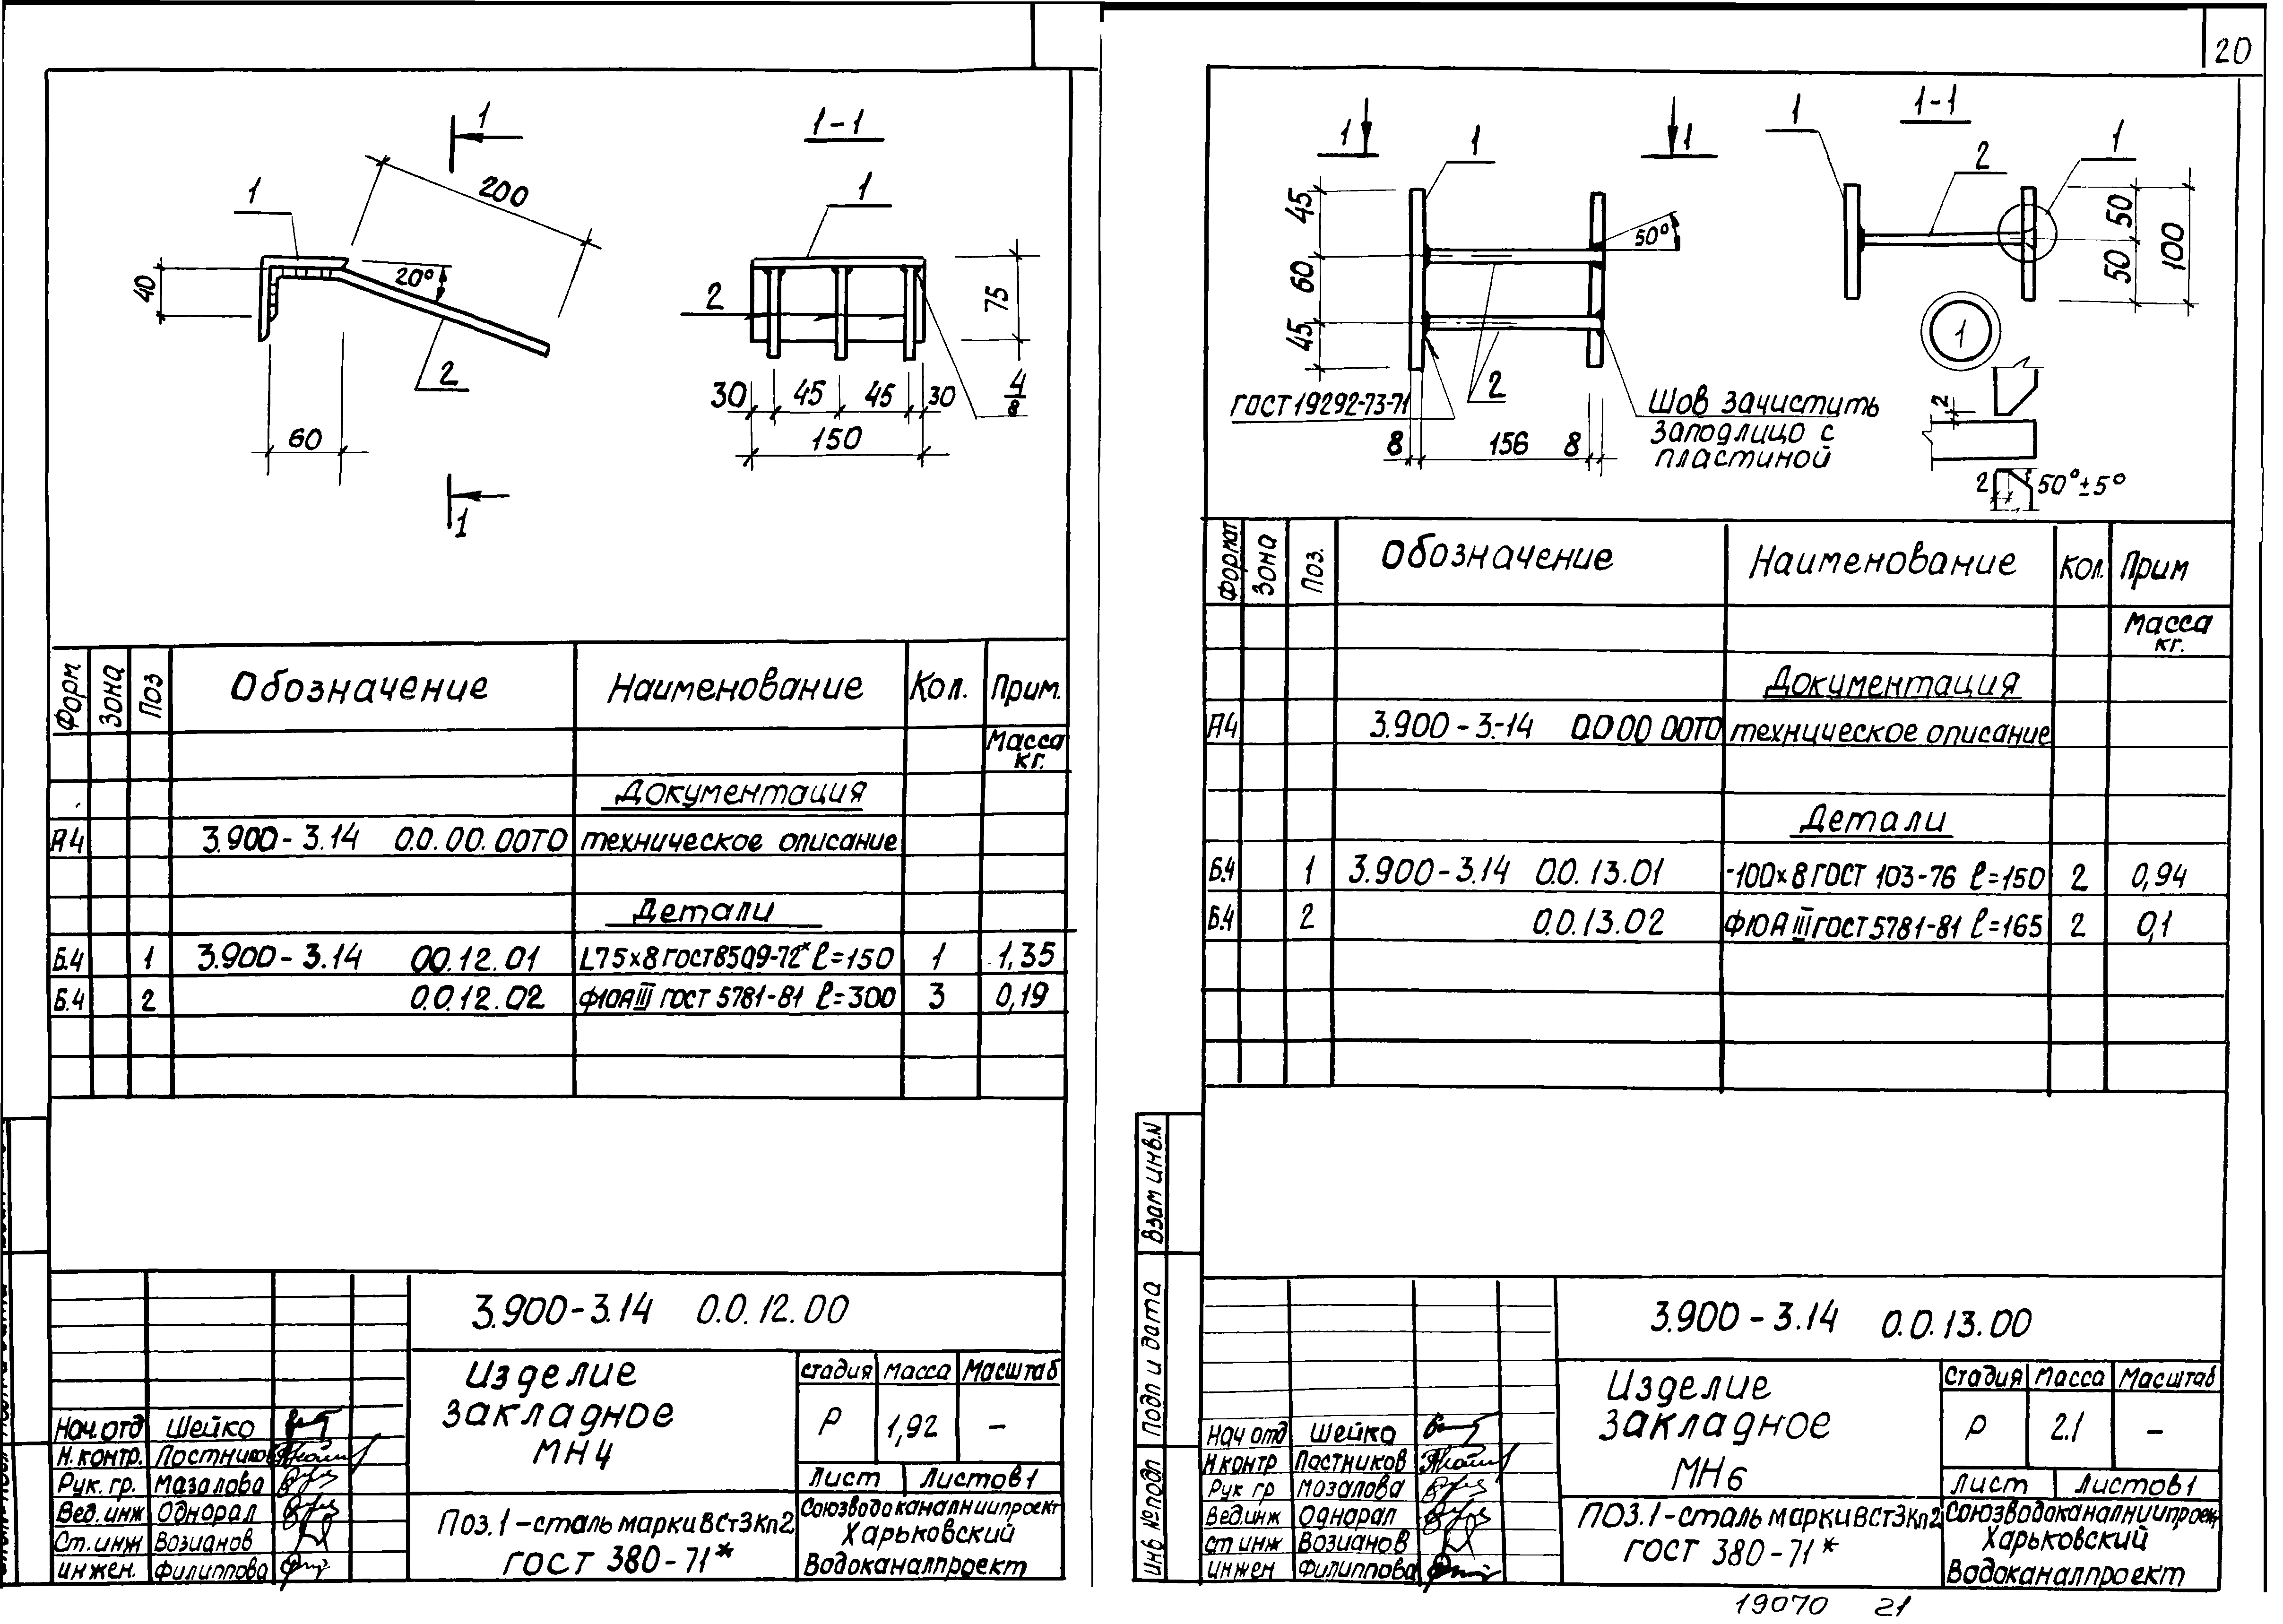 20
1
1-1
200
1
1
20°
40
2
75
2
30 45 45 30
4
8
60
150
1
1
1
1
1-1
1
1
2
45
50°
50
60
100
50
45
1
2
ГОСТ 19292-73-71
Шов зачистить
заподлицо с
пластиной
2
8 156 8
2
50°±5°
Форм. Зона Поз Обозначение Наименование Кол. Прим.
Масса
кг.
Документация
А4 3.900-3.14 0.0.00.00ТО техническое описание
Детали
Б.4 1 3.900-3.14 00.12.01 L75×8 ГОСТ 8509-72* ℓ=150 1 1,35
Б.4 2 0.0.12.02 ф10АIII ГОСТ 5781-81 ℓ=300 3 0,19
3.900-3.14 0.0.12.00
Изделие
закладное
МН4
стадия Масса Масштаб
Р 1,92 –
Лист Листов 1
Нач.отд Шейко
Н.контр. Постников
Рук. гр. Мазалова
Вед.инж Однорал
Ст.инж Возианов
инжен. Филиппова
Поз.1-сталь марки ВСт3кп2
ГОСТ 380-71*
Союзводоканалниипроект
Харьковский
Водоканалпроект
Формат Зона Поз. Обозначение Наименование Кол. Прим
Масса
кг.
Документация
А4 3.900-3.14 0.0.00.00ТО техническое описание
Детали
Б.4 1 3.900-3.14 0.0.13.01 -100×8 ГОСТ 103-76 ℓ=150 2 0,94
Б.4 2 0.0.13.02 ф10АIII ГОСТ 5781-81 ℓ=165 2 0,1
Взам инв.N
Подп и дата
Инв № подп
3.900-3.14 0.0.13.00
Изделие
закладное
МН6
Стадия Масса Масштаб
Р 2.1 –
Лист Листов 1
Нач отд Шейко
Н контр Постников
Рук гр Мазалова
Вед.инж Однорал
ст инж Возианов
инжен Филиппова
ПОЗ.1-сталь марки ВСт3кп2
ГОСТ 380-71*
Союзводоканалниипроект
Харьковский
Водоканалпроект
19070 21